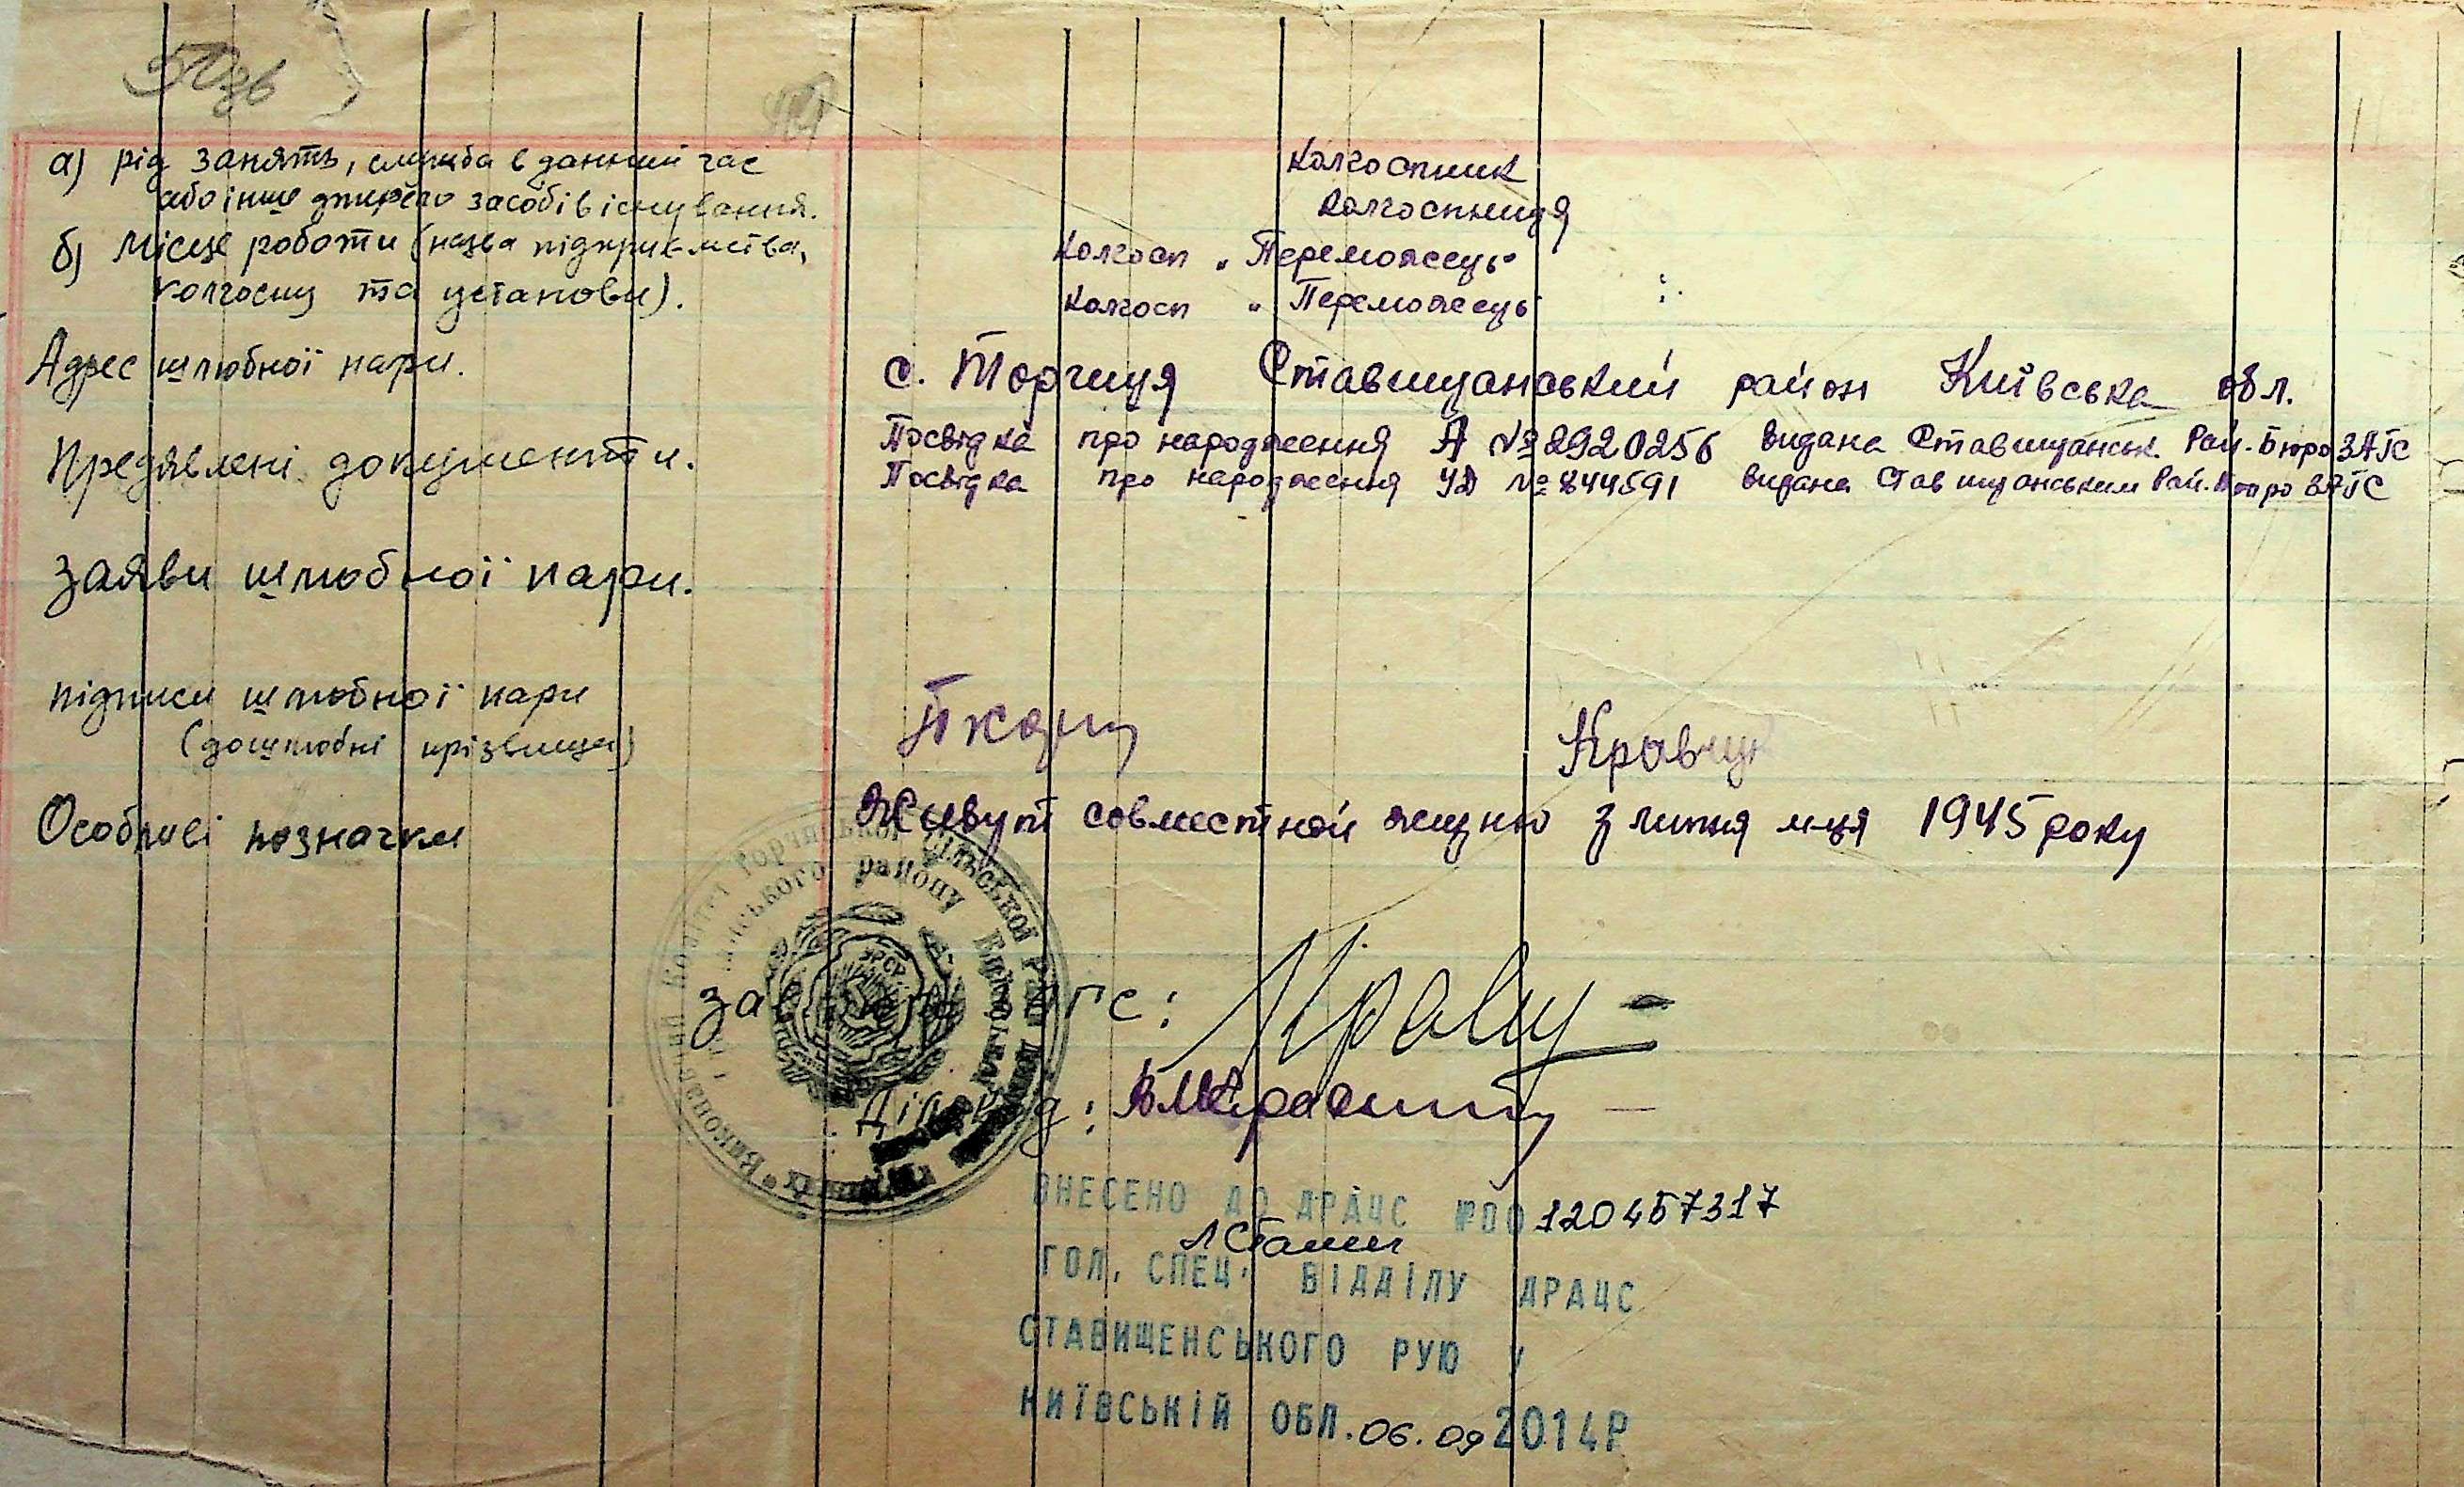 50зв
а) рід занять, служба в данний час Колгоспник
або інше джерело засобів існування. Колгоспниця
б) Місце роботи (назва підприємства, Колгосп „Переможець"
колгоспу та установи). Колгосп „Переможець"
Адрес шлюбної пари. с. Торчиця Ставищанський район Київська обл.
Предявлені документи. Посвідка про народження А № 2920256 видана Ставищанськ. Рай. Бюро ЗАГС
Посвідка про народження УД № 844591 видана Ставищанським Рай. Бюро ЗАГС
Заяви шлюбної пари.
підписи шлюбної пари Ткач Кравчук
(дошлюбні прізвища)
Особливі позначки Живут совместной жизню з липня м-ця 1945 року
Виконавчий Комітет Торчицької Сільської Ради
району Київської
УРСР
Зав. ЗАГС:
Діловод:
ВНЕСЕНО ДО ДРАЦС №00120457317
ГОЛ. СПЕЦ. ВІДДІЛУ ДРАЦС
СТАВИЩЕНСЬКОГО РУЮ У
КИЇВСЬКІЙ ОБЛ. 06.09 2014Р